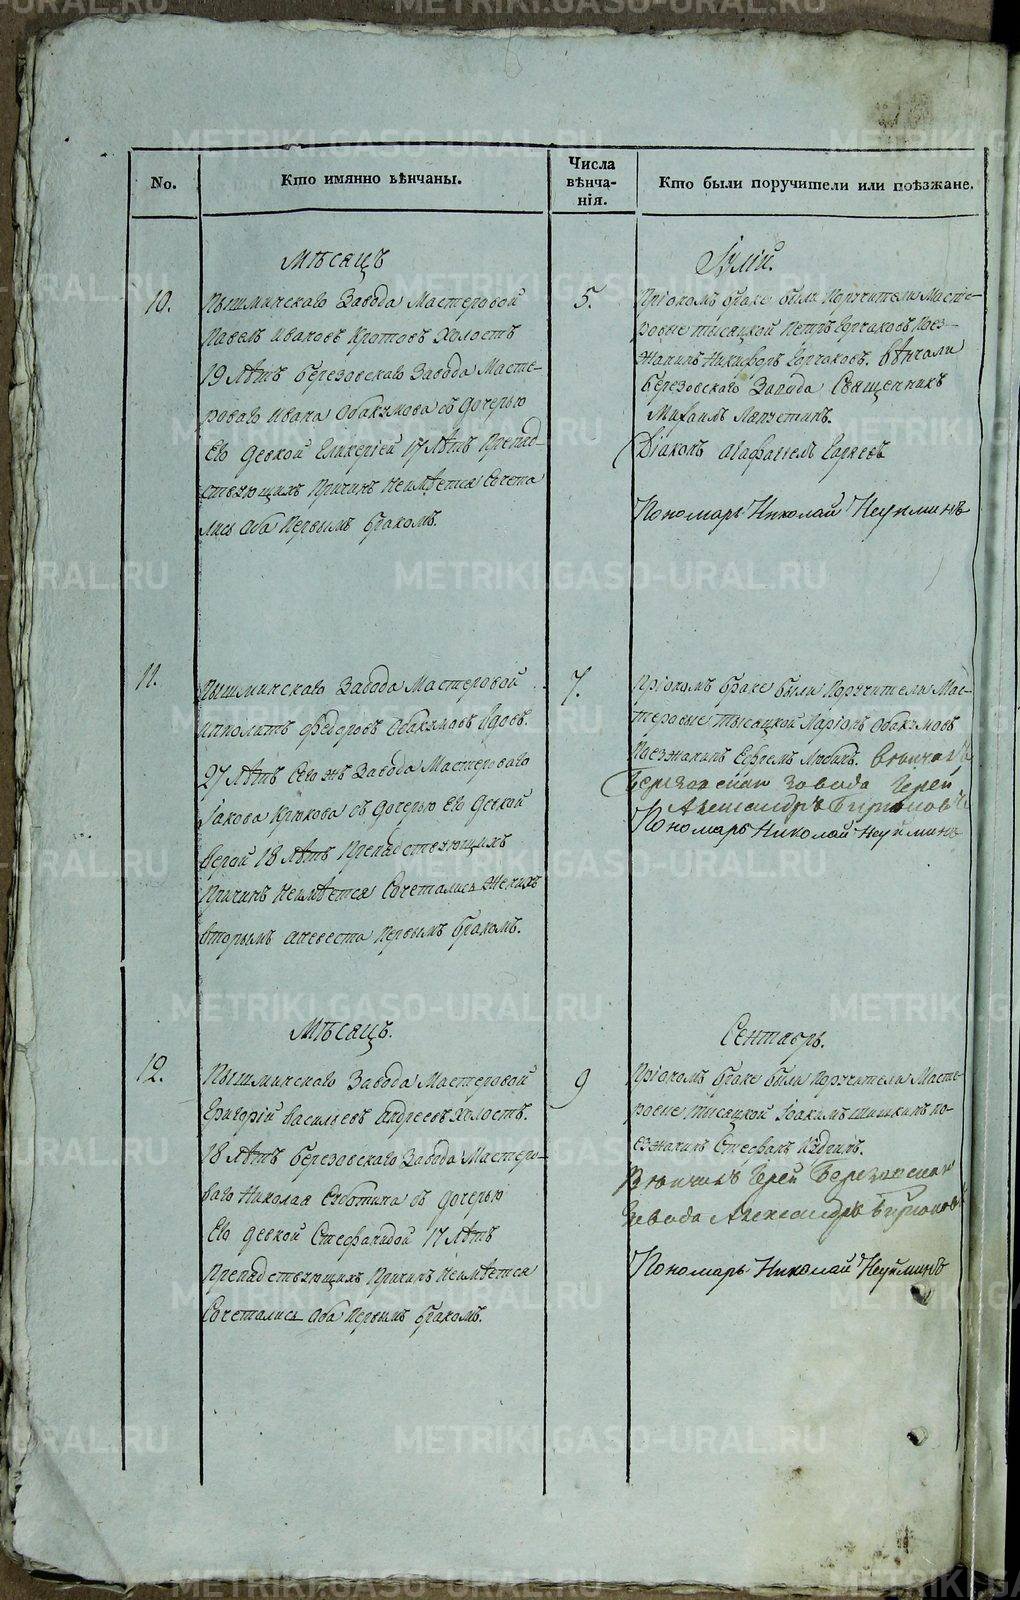 No.
Кто имянно вѣнчаны.
Числа
вѣнча-
нія.
Кто были поручители или поѣзжане.
Мѣсяцъ
Іулій.
10.
Пышминскаго Завода Мастеровой
Павелъ Ивановъ Кротовъ холостъ
19 Лѣтъ березовскаго Завода Масте-
роваго Ивана Обакумова съ дочерью
Ею девкой Гликеріей 17 Лѣтъ Препяд-
ствующихъ Причинъ Неимѣется Сочета
лись Оба Первымъ бракомъ.
5.
Приіономъ браке были Поручители Масте-
ровые тысяцкой Петръ Горчаковъ Поез-
жанинъ Никифоръ Горчаковъ. вѣнчали
березовскаго Завода Священникъ
Михаилъ Лапустинъ.
Діаконъ
Пономарь Николай Неуйминъ
11.
Пышминскаго Завода Мастеровой
Ипполитъ Федоровъ Обакумовъ вдовъ.
27 Лѣтъ Сего жъ Завода Мастероваго
Іакова Крюкова съ дочерью Ею девкой
Верой 18 Лѣтъ Препядствующихъ
Причинъ Неимѣется Сочетались Женихъ
вторымъ аневеста Первымъ бракомъ.
7.
Приіономъ браке были Поручители Мас-
теровые тысяцкой Ларіонъ Обакумовъ
Поезжанинъ Ефремъ Любинъ. Венчалъ
Березовскаи завода Іерей
Александръ Бирюковъ
Пономарь Николай Неуйминъ
Мѣсяцъ.
Сентябрь.
12.
Пышминскаго Завода Мастеровой
Григорій Васильевъ Андреевъ холостъ.
18 Лѣтъ березовскаго Завода Мастеро-
ваго Николая Суботина съ дочерью
Ею девкой Стефанидой 17 Лѣтъ
Препядствующихъ Причинъ Неимѣется
Сочетались Оба Первымъ бракомъ.
9
Приіономъ браке были Поручители Масте-
ровые тысяцкой Іоакимъ Шишкинъ по-
езжанинъ Стефанъ
Венчалъ Іерей Березовскаи
Завода Александръ Бирюковъ
Пономарь Николай Неуйминъ
METRIKI.GASO-URAL.RU